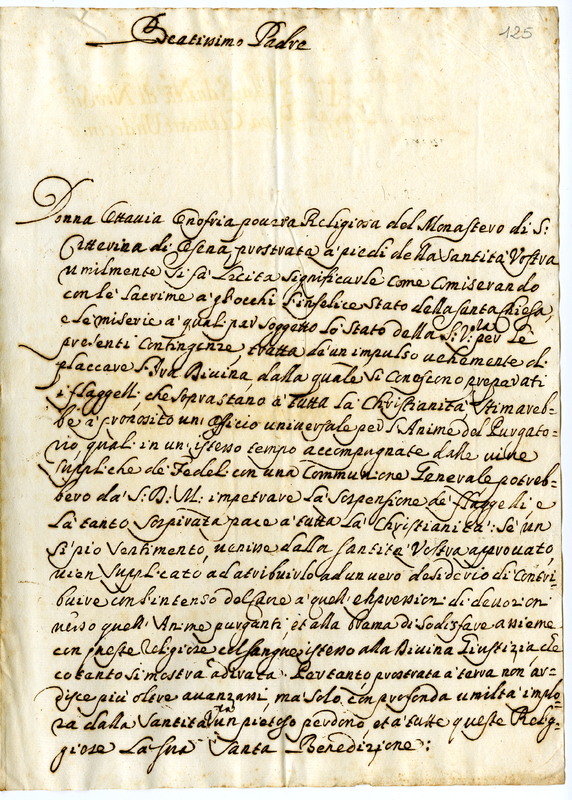 Beatissimo Padre
125
Donna Ottavia Onofria pouera Religiosa del Monastero di S:
Catterina di Cesena, prostrata à piedi della Santità Vostra
umilmente si fà lecita significarle come comiserando
con le lacrime à gl'occhi l'infelice Stato della Santa Chiesa,
e le miserie a' quali per soggetto lo Stato della S: V:ra per le
presenti Contingenze, tratta de un impulso vehemente di
placcare l'Ira Diuina, dalla quale si conoscono preparati
i flaggelli, che soprastano à tutta la Christianità stimareb=
be à proposito un' Officio uniuersale per l'Anime del Purgato=
rio, quali in un' istesso tempo accompagnate dalle uiue
suppliche de' Fedeli con una Communione Generale potreb=
bero dà S. D. M: impetrare la sospensione de' flaggelli e
la tanto sospirata pace à tutta la Christianità: Se un
sì pio sentimento, uenisse dalla Santità Vostra approuato,
uien supplicato ad atribuirlo ad un uero desiderio di Contri=
buire con l'intenso del cuore à quell' espressioni di deuozion
uerso quell' Anime purganti, et alla brama di sodisfare assieme
con queste Religiose col sangue istesso alla Diuina Giustizia che
cotanto si mostra adirata. Pertanto prostrata à terra non ar=
disce più oltre auanzarsi, ma solo con profonda umiltà implo=
ra dalla Santità V:ra un pietoso perdono, et a tutte queste Relig=
giose la sua Santa Benedizione: